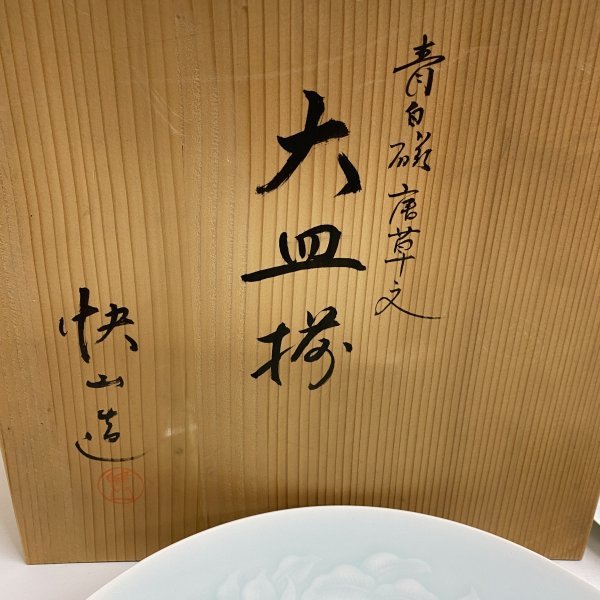 青白磁唐草文
大皿揃
快山造